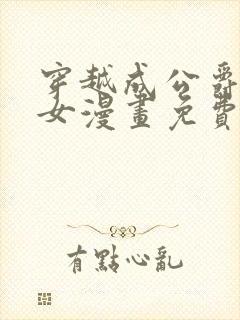 穿越成公爵
女漫畫免費
有點心亂